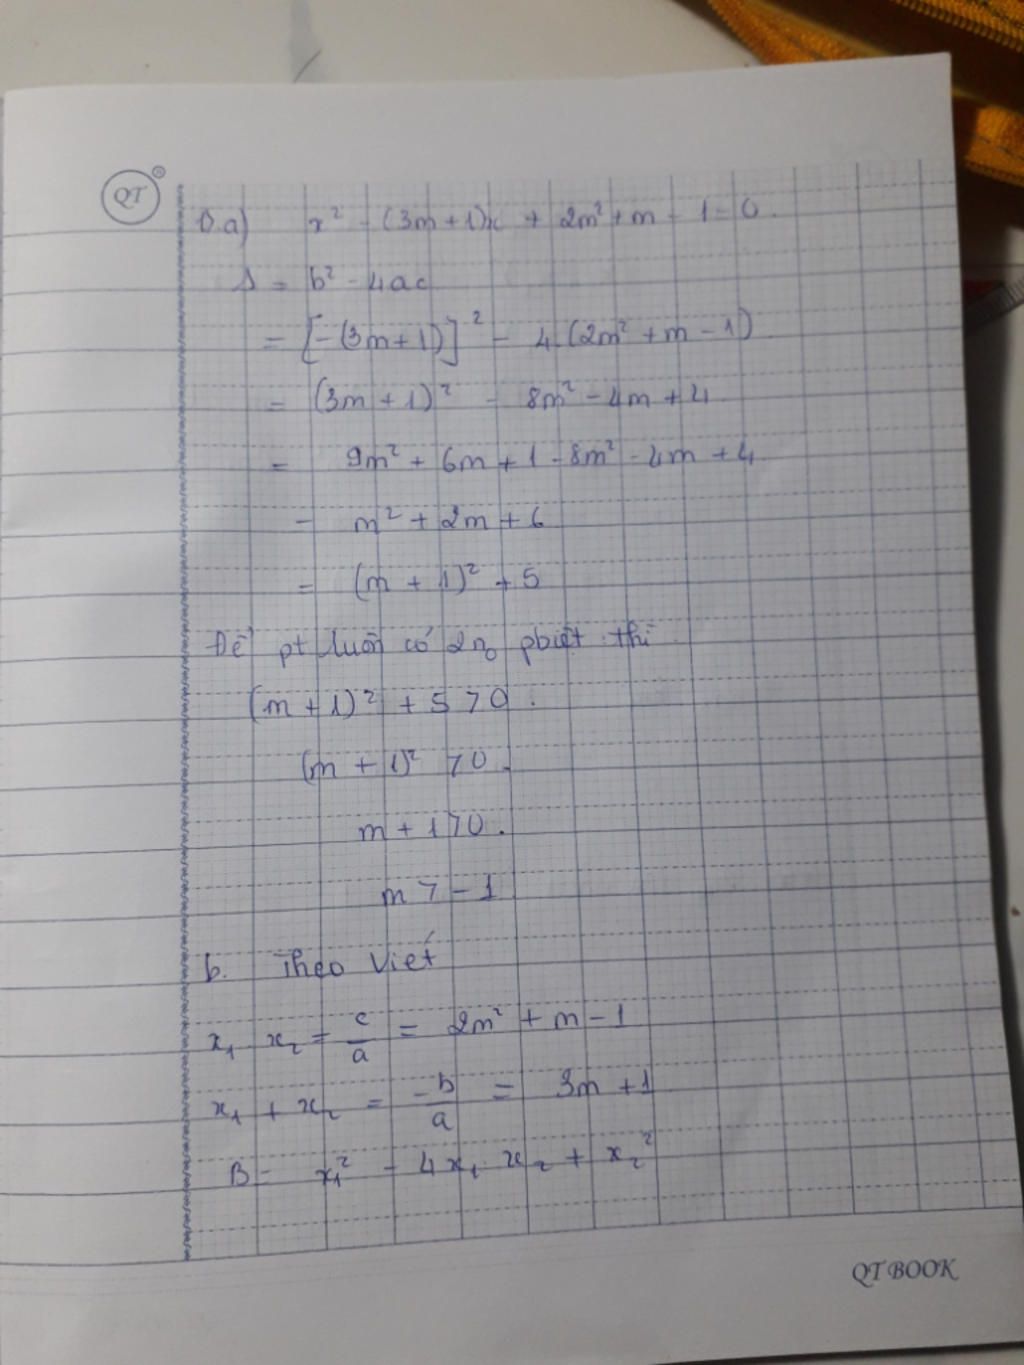 QT ®
1). a) x² - (3m + 1)x + 2m² + m - 1 = 0.
Δ = b² - 4ac
= [-(3m+1)]² - 4.(2m² + m - 1)
= (3m + 1)² - 8m² - 4m + 4
= 9m² + 6m + 1 - 8m² - 4m + 4
= m² + 2m + 6
= (m + 1)² + 5
Để pt luôn có 2no pbiệt thì
(m + 1)² + 5 > 0.
(m + 1)² > 0.
m + 1 > 0.
m > -1
b. Theo Viét
x₁ . x₂ = c/a = 2m² + m - 1
x₁ + x₂ = -b/a = 3m + 1
B = x₁² - 4x₁ . x₂ + x₂²
QT BOOK